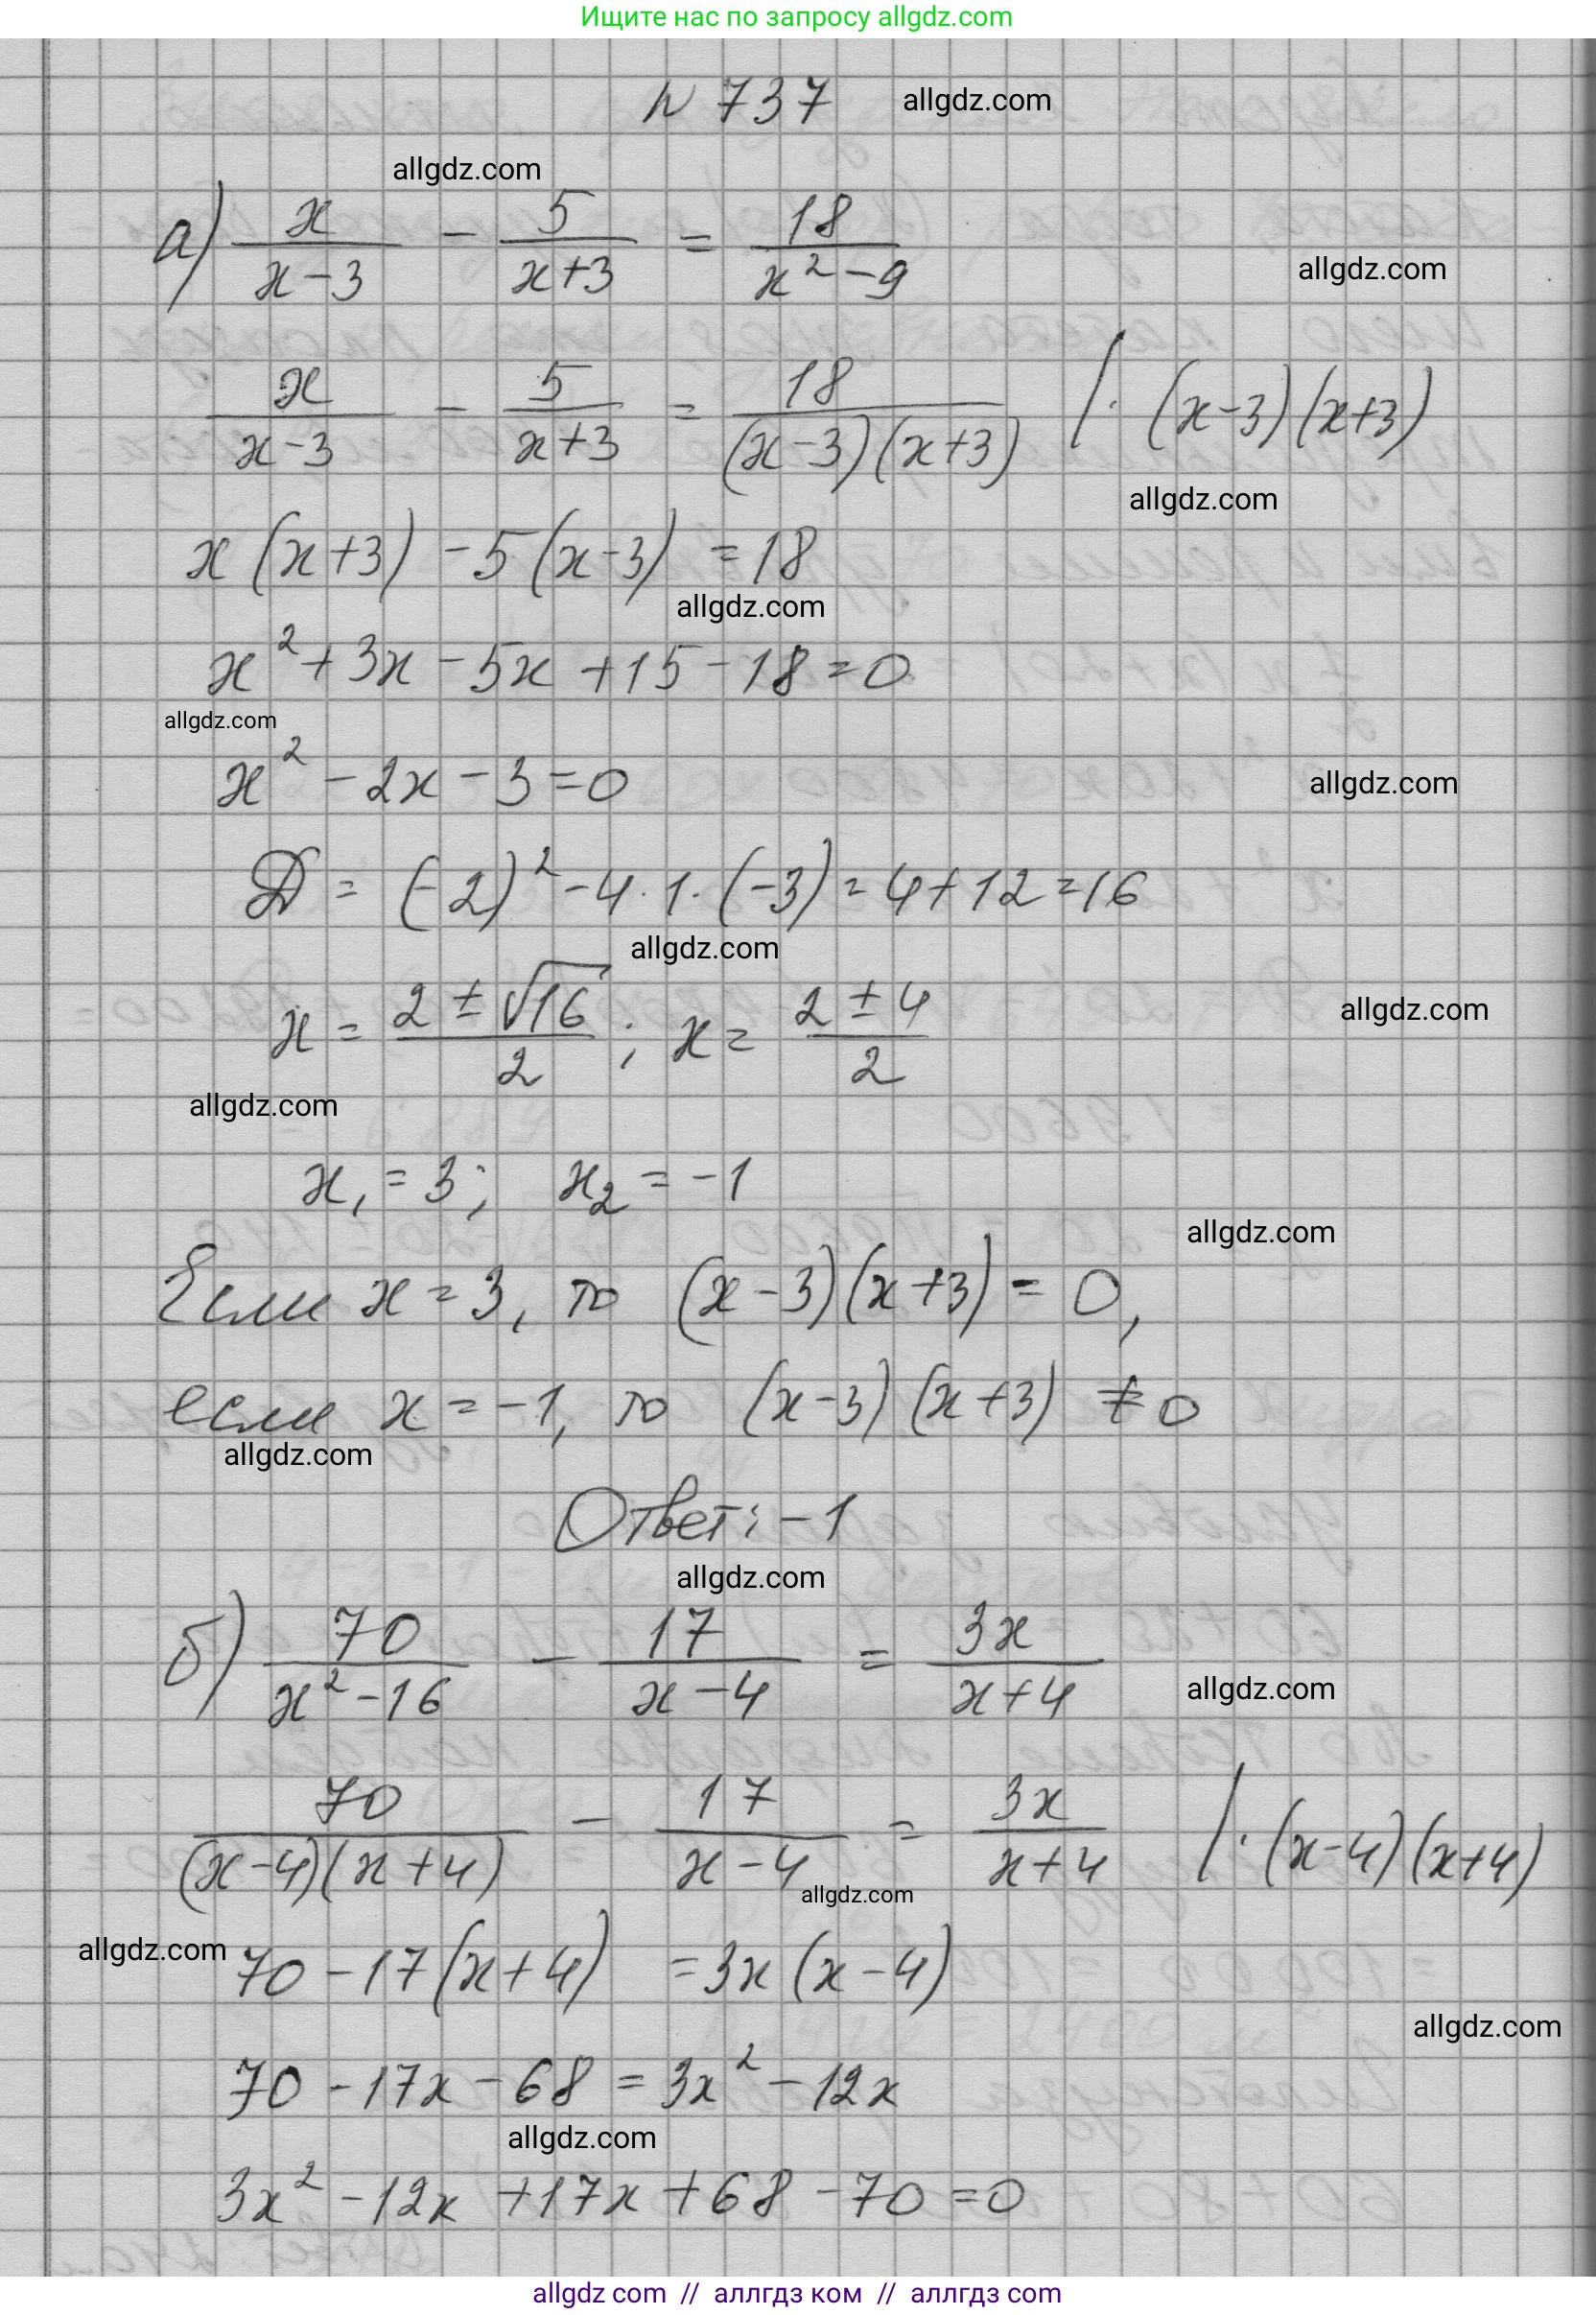 Ищите нас по запросу allgdz.com
№ 737 allgdz.com
allgdz.com
а) x/(x-3) - 5/(x+3) = 18/(x²-9)
allgdz.com
x/(x-3) - 5/(x+3) = 18/((x-3)(x+3)) /·(x-3)(x+3)
allgdz.com
x(x+3) - 5(x-3) = 18
allgdz.com
x² + 3x - 5x + 15 - 18 = 0
allgdz.com
x² - 2x - 3 = 0
allgdz.com
Д = (-2)² - 4·1·(-3) = 4 + 12 = 16
allgdz.com
x = (2 ± √16)/2 ; x = (2 ± 4)/2
allgdz.com
allgdz.com
x₁ = 3; x₂ = -1
allgdz.com
Если x = 3, то (x-3)(x+3) = 0,
если x = -1, то (x-3)(x+3) ≠ 0
allgdz.com
Ответ: -1
allgdz.com
б) 70/(x²-16) - 17/(x-4) = 3x/(x+4)
allgdz.com
70/((x-4)(x+4)) - 17/(x-4) = 3x/(x+4) /·(x-4)(x+4)
allgdz.com
allgdz.com
70 - 17(x+4) = 3x(x-4)
allgdz.com
70 - 17x - 68 = 3x² - 12x
allgdz.com
3x² - 12x + 17x + 68 - 70 = 0
allgdz com // аллгдз ком // аллгдз com